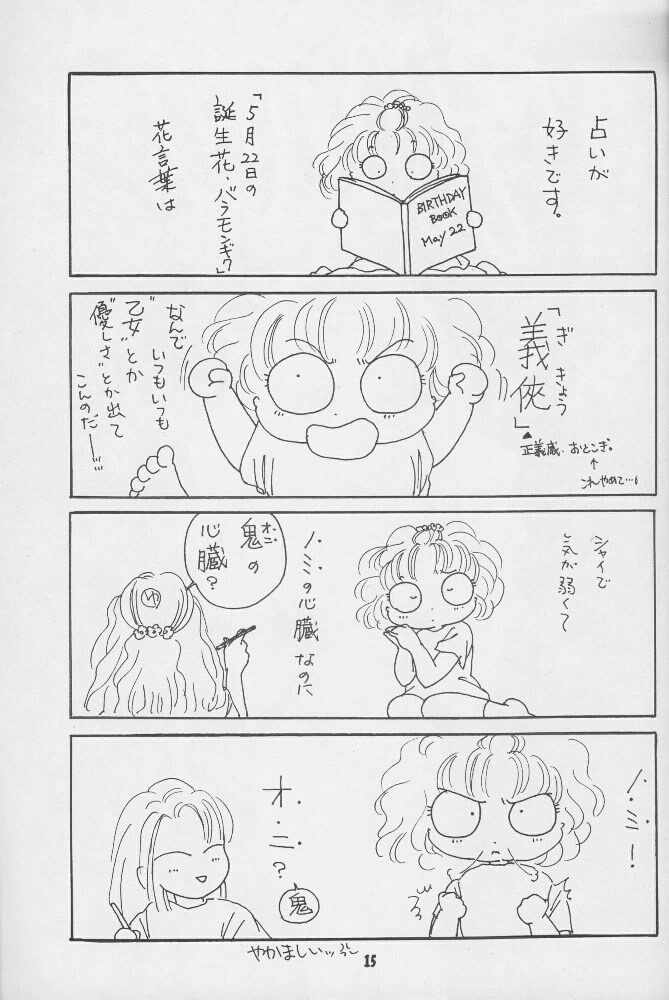 占いが
好きです。
「5月22日の
誕生花、バラモンギク」
花言葉は
BIRTHDAY
BOOK
May 22
「義俠」
ぎ きょう
正義感・おとこぎ。
↑
これやめて…
なんで
いつもいつも
"乙女"とか
"優しさ"とか出て
こんのだー
シャイで
気が弱くて
ノミの心臓なのに
鬼の
オニ
心臓?
ゆ
ノ・ミ・!
オ・ニ・?
鬼
やかましいッ
15